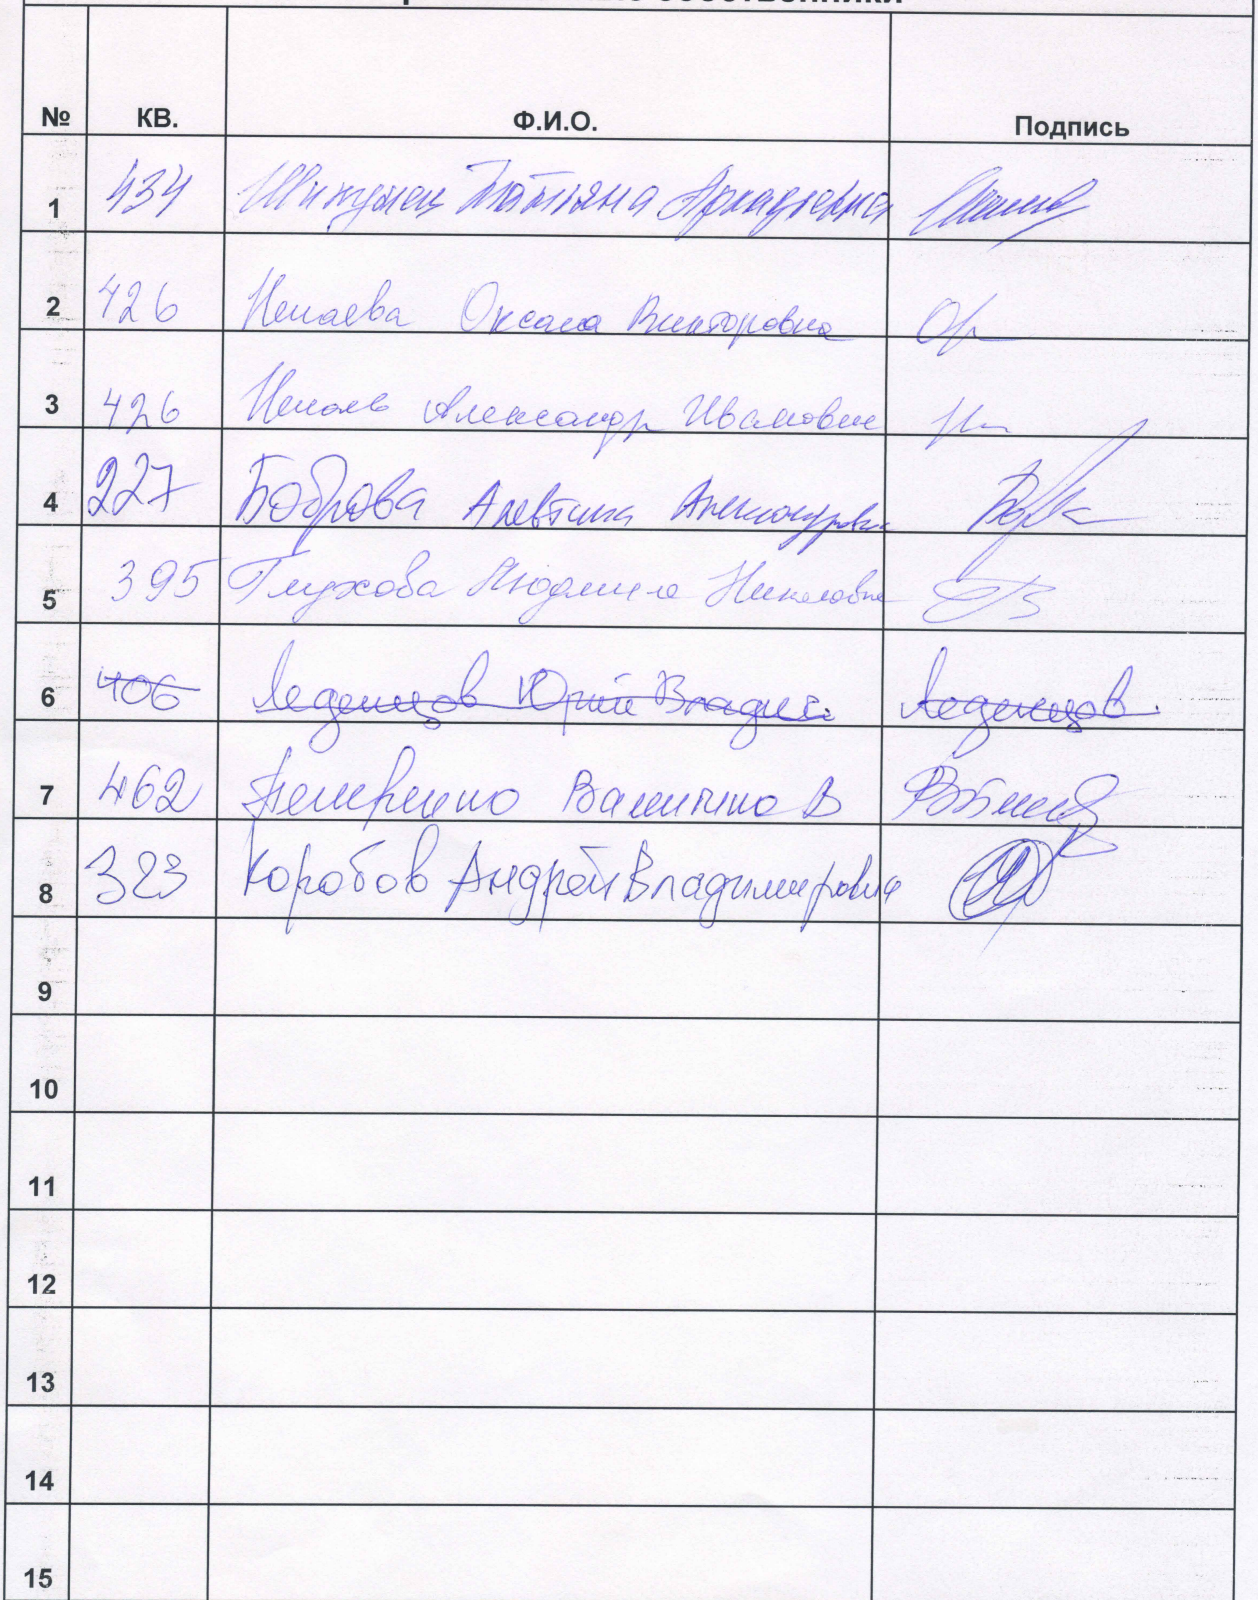 собственники
№ КВ. Ф.И.О. Подпись
1 434 Татьяна Аркадьевна
2 426 Оксана Викторовна
3 426 Александр Иванович
4 227 Боброва Алевтина Александровна
5 395 Глухова Людмила Николаевна
6 406 Леденцов Юрий Леденцов.
7 462 Валентина В
8 323 Коробов Андрей Владимирович
9
10
11
12
13
14
15